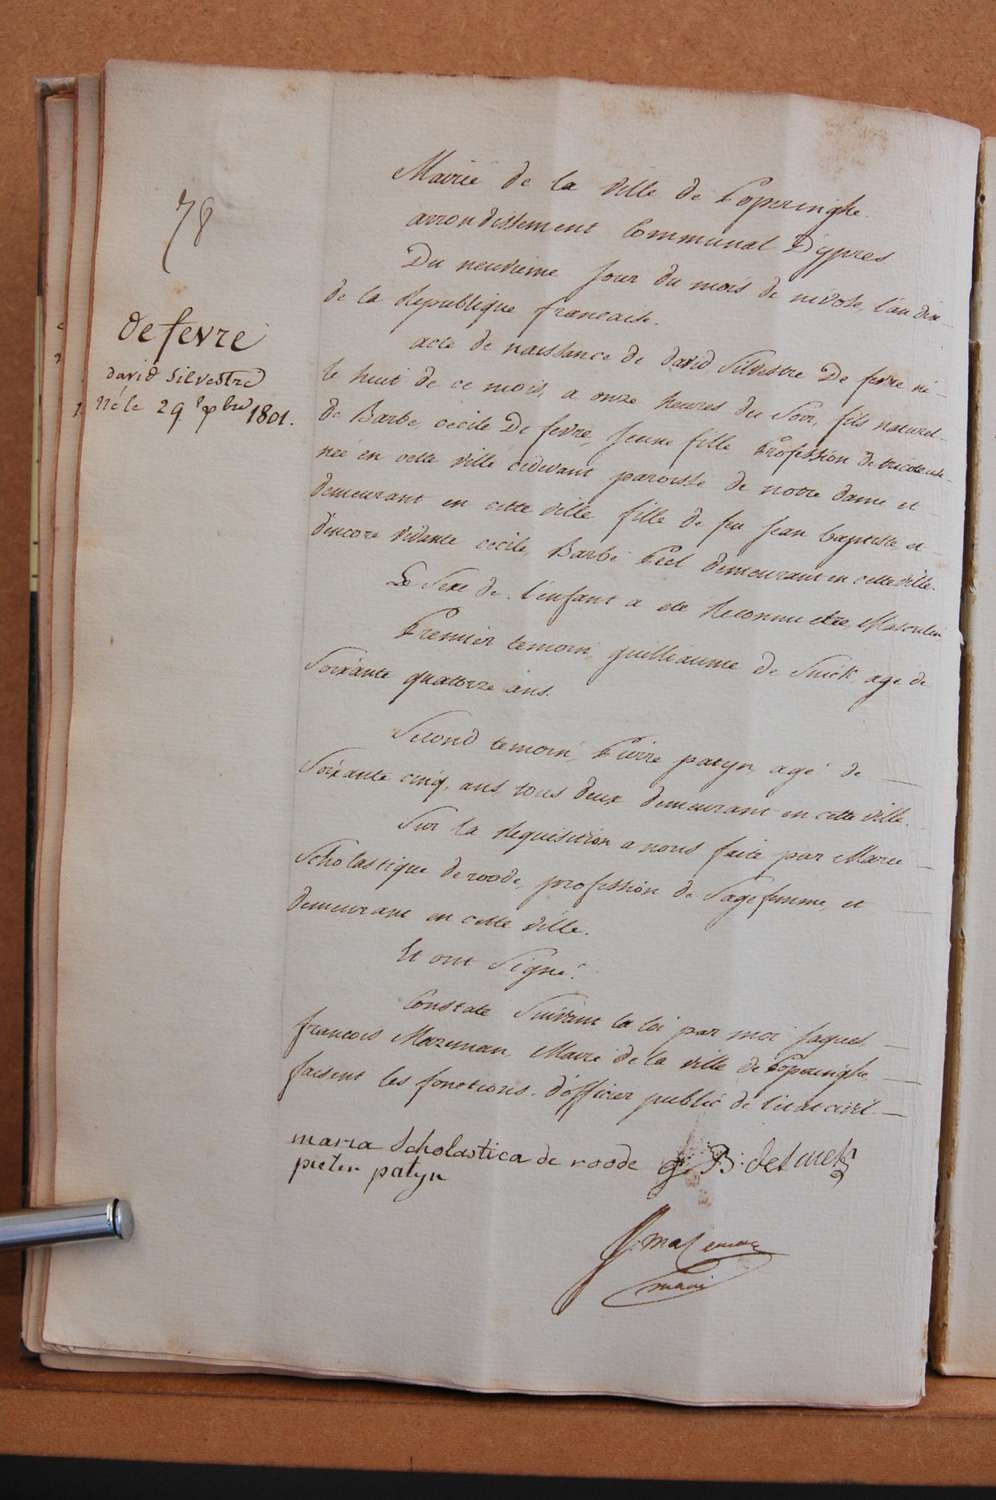 78
de fevre
david Silvestre
Né le 29 Xbre 1801.
Mairie de la ville de Poperinghe
arrondissement Communal D'ypres
Du neuvieme Jour du mois de nivose, l'an dix
de la Republique francaise.
acte de naissance de david Silvestre De fevre né
le huit de ce mois, a onze heures du Soir, fils naturel
de Barbe, cecile De fevre, Jeune fille Profession de tricoteuse
née en cette ville cidevant paroisse de notre dame et
demeurant en cette ville fille de feu Jean baptiste et
d'encore vivante cecile, Barbe Piel demeurant en cette ville.
Le Sexe de l'enfant a eté Reconnu etre, Masculin
Premier temoin, guilleaume de Snick, agé de
Soixante quatorze ans.
Second temoin, Pierre patyn, agé de
Soixante cinq, ans, tous deux demeurant en cette ville.
Sur la Requisition a nous faite par Marie
Scholastique de roode, profession de Sagefemme, et
demeurant en cette ville.
Et ont Signé.
Constate Suivant la loi par moi Jaques
francois Mazeman, Maire de la ville de Poperinghe
faisent les fonctions d'officier public de l'etat civil
maria Scholastica de roode g: B: desnick
pieter patyn
J: mazeman
maire